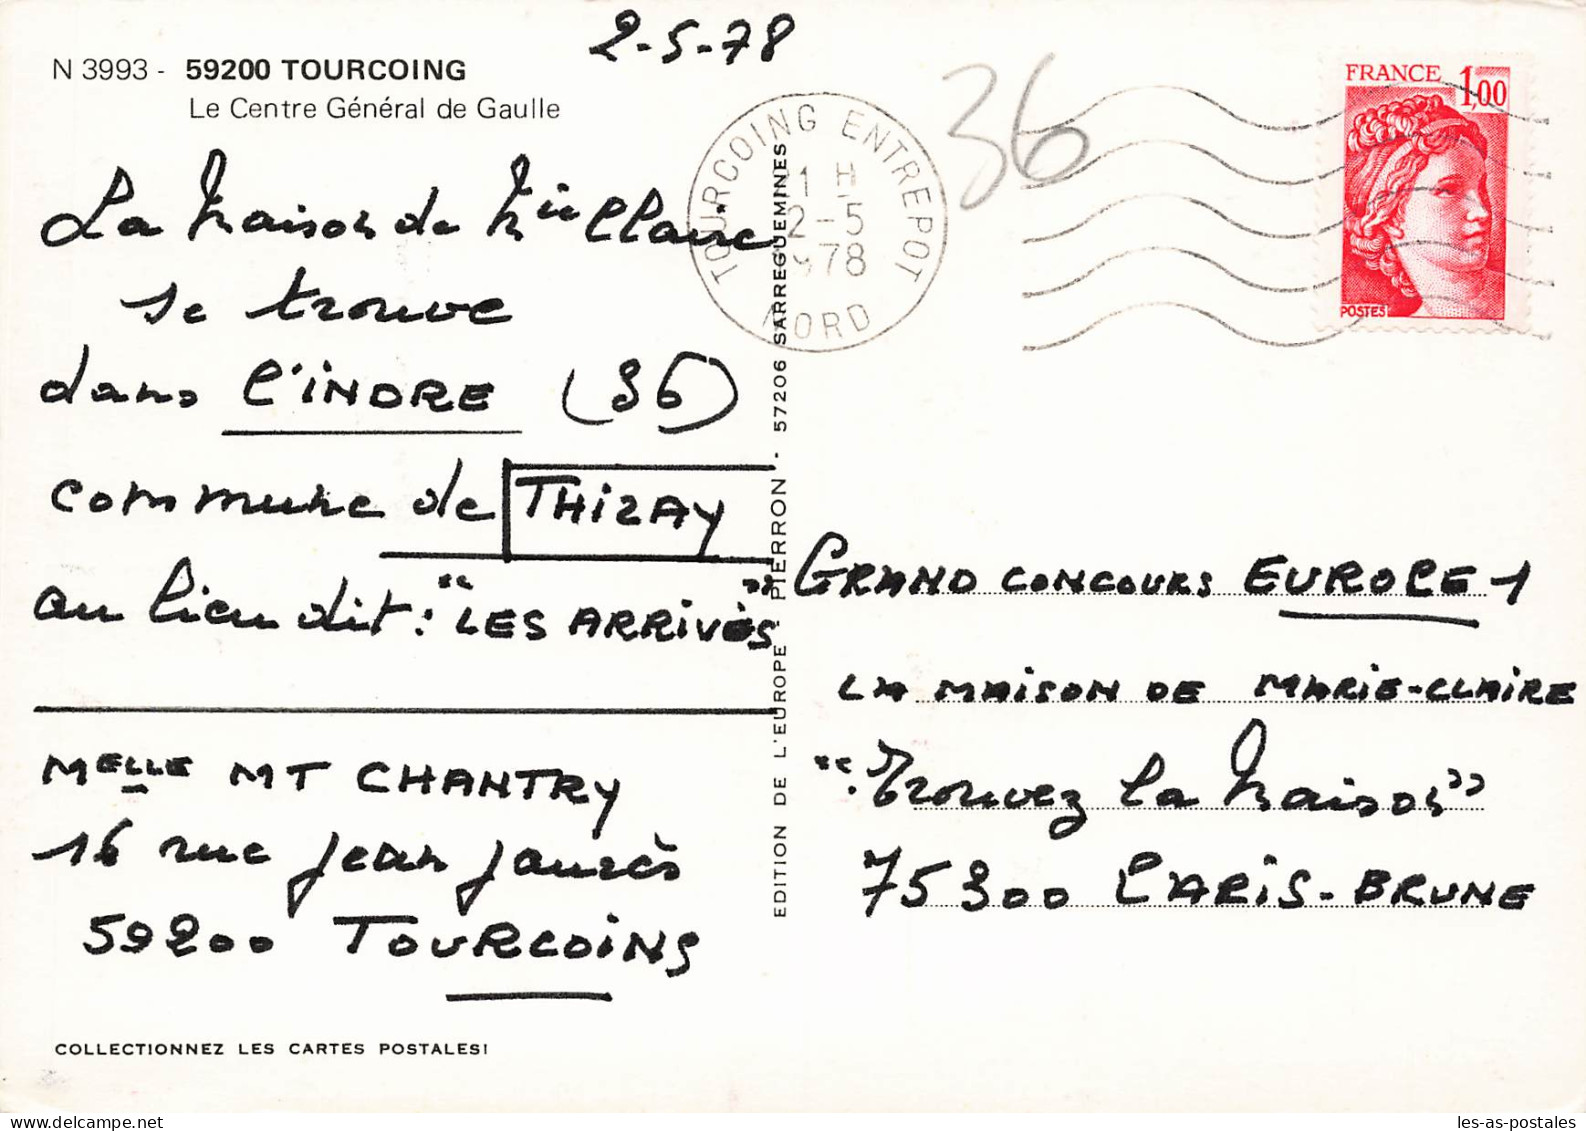 2-5-78
N 3993 - 59200 TOURCOING
Le Centre Général de Gaulle
La Maison de Mie Claire
se trouve
dans l'INDRE (36)
commune de THIZAY
au lieu dit : "LES ARRIVÉS"
Melle MT CHANTRY
16 rue Jean Jaurès
59200 TOURCOING
COLLECTIONNEZ LES CARTES POSTALES!
EDITION DE L'EUROPE - PIERRON - 57206 SARREGUEMINES
TOURCOING ENTREPOT
21 H
2-5
1978
NORD
36
FRANCE 1,00
POSTES
GRAND CONCOURS EUROPE 1
LA MAISON DE MARIE-CLAIRE
"Trouvez la Maison"
75300 PARIS-BRUNE
les-as-postales